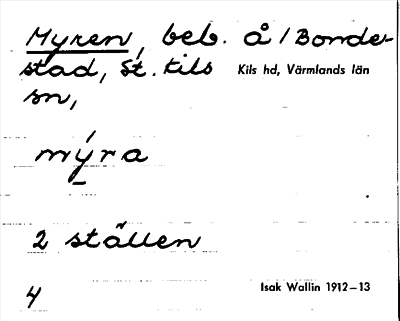 Myren, beb. å / Bonde-
stad, St. Kils Kils hd, Värmlands län
sn,
mýra
2 ställen
4 Isak Wallin 1912–13